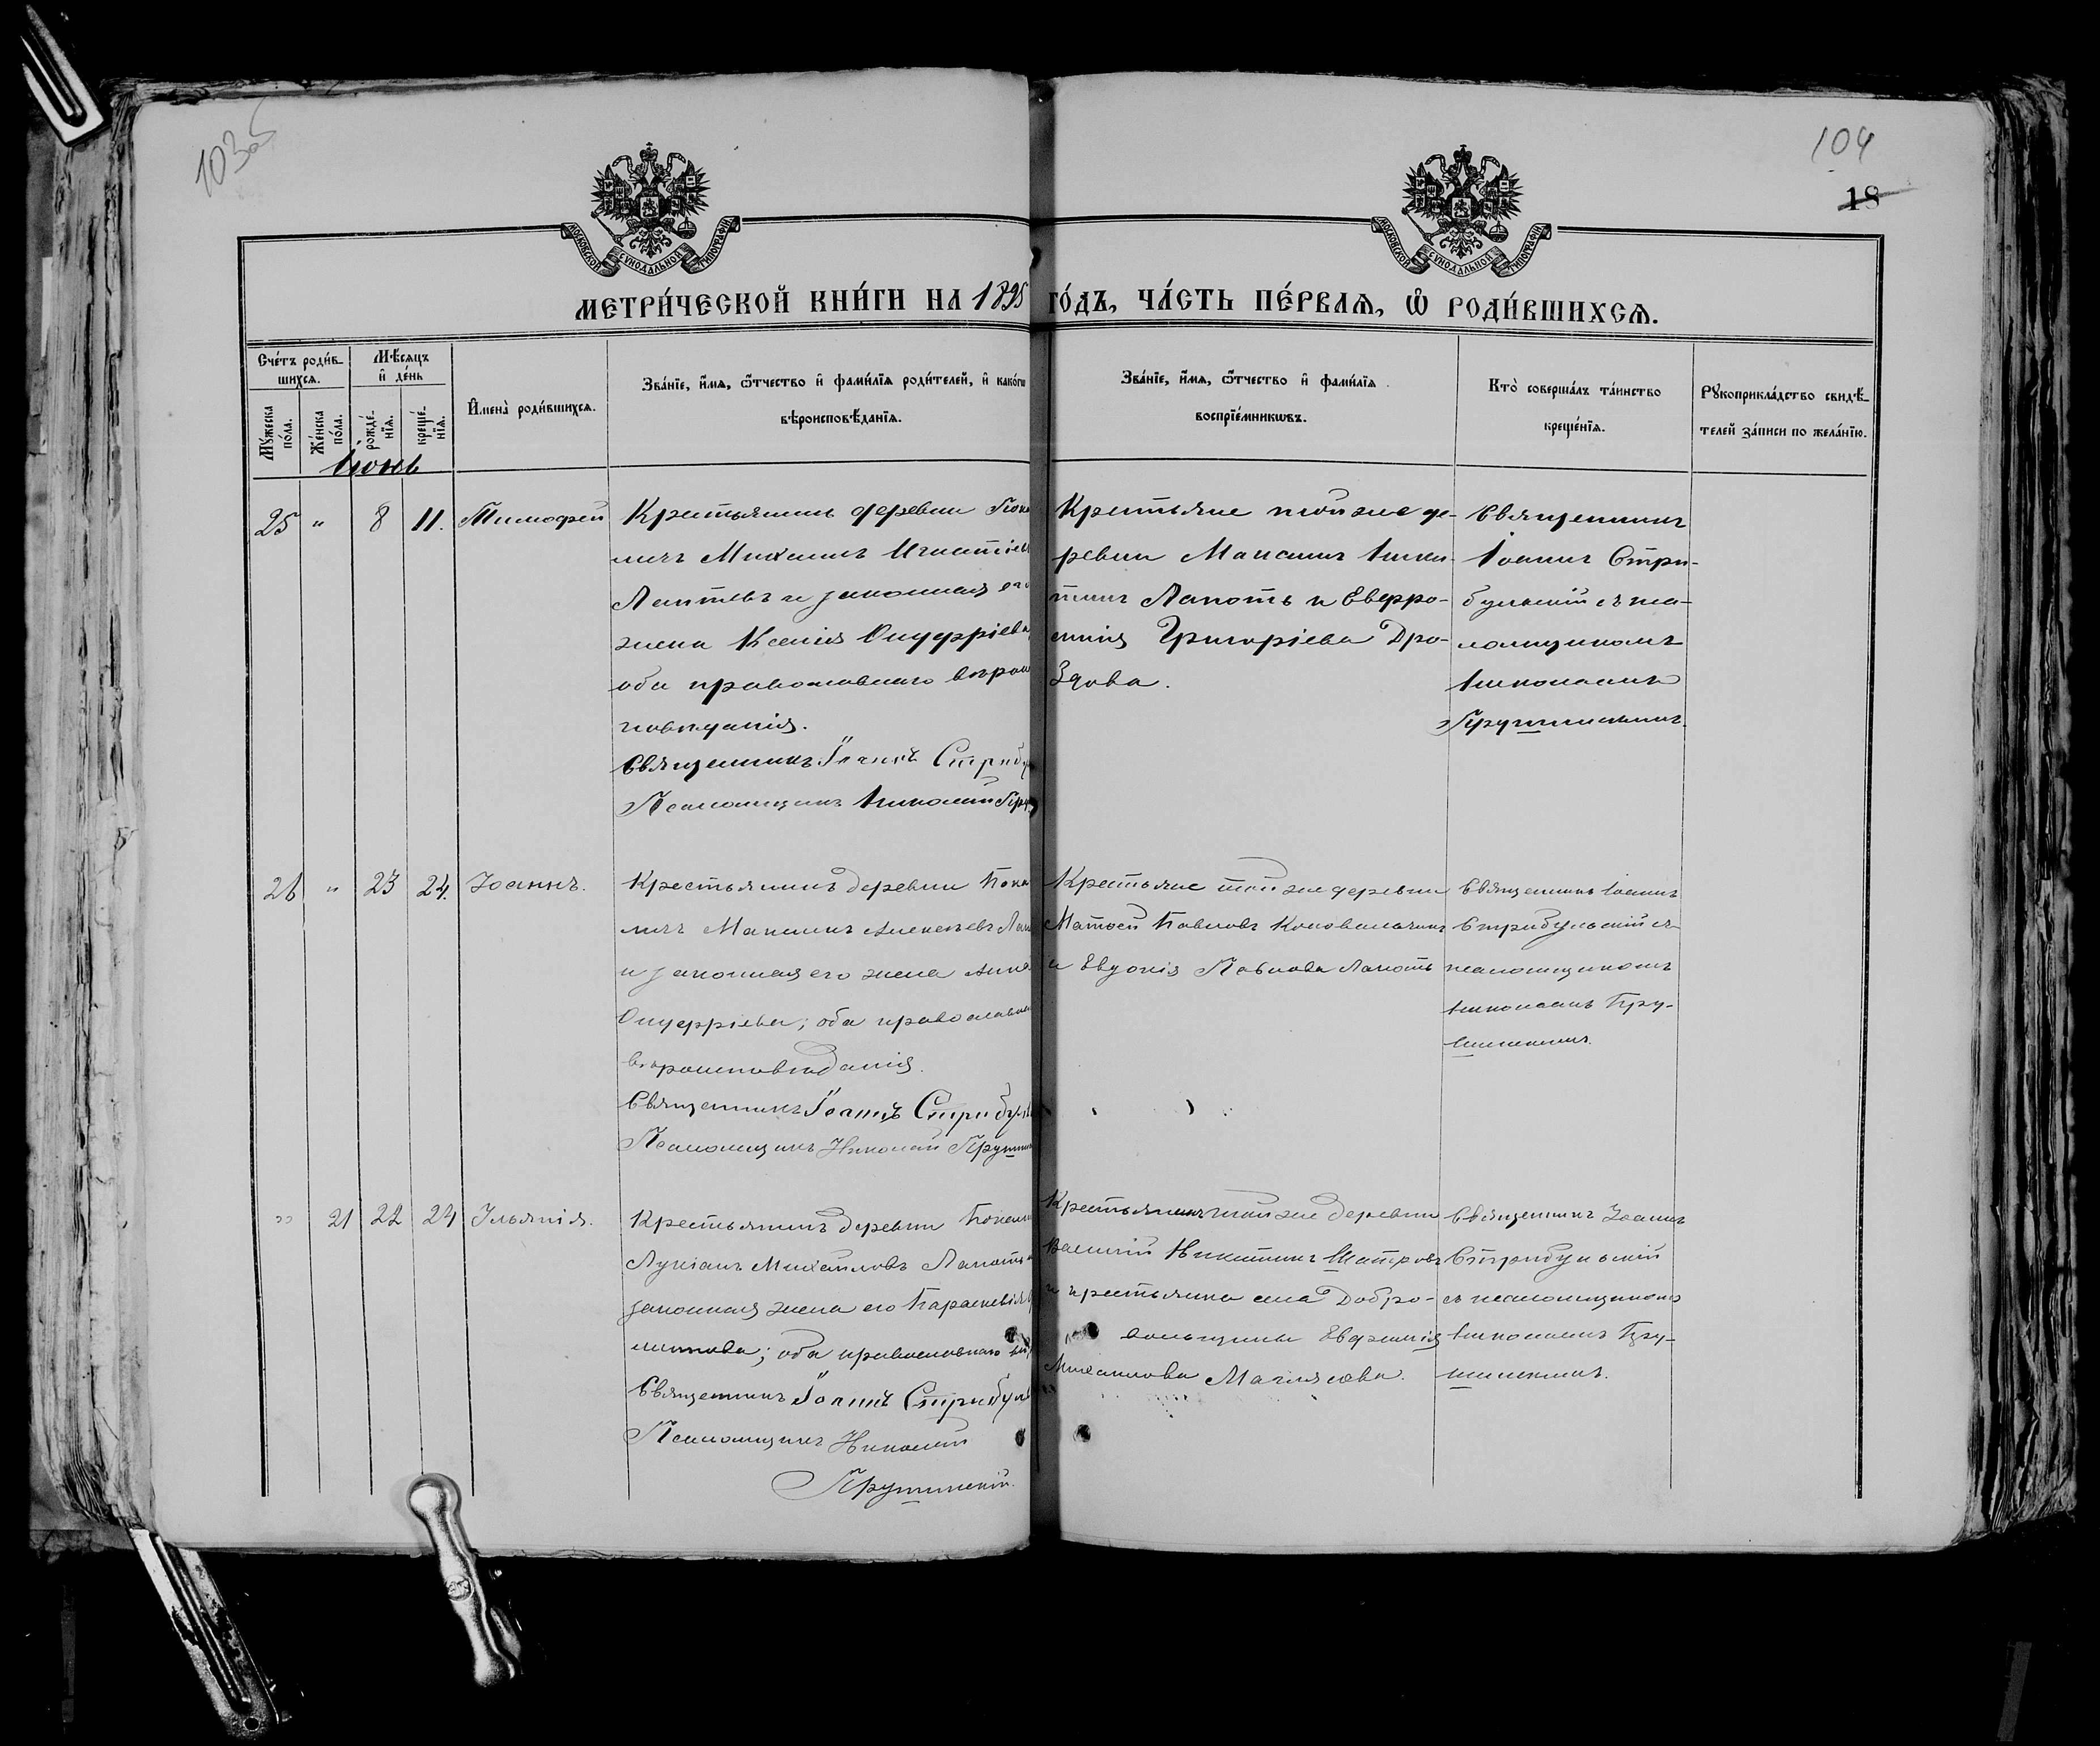 103об
104
18
МОСКОВСКОЙ СѴНОДАЛЬНОЙ ТИПОГРАФІИ
МОСКОВСКОЙ СѴНОДАЛЬНОЙ ТИПОГРАФІИ
МЕТРИ́ЧЕСКОЙ КНИ́ГИ НА 1895 ГО́ДЪ, ЧА́СТЬ ПЕ́РВАѦ, Ѡ҆ РОДИ́ВШИХСѦ.
Сче́тъ роди́в-
шихсѧ.
Мѣ́сѧцъ
и҆ де́нь
Мꙋ́жеска по́ла.
Же́нска по́ла.
рожде́-нїѧ.
креще́-нїѧ.
И҆мена̀ роди́вшихсѧ.
Зва́нїе, и҆́мѧ, ѻ҆́тчество и҆ фами́лїѧ роди́телей, и҆ како́гѡ
вѣроисповѣ́данїѧ.
Зва́нїе, и҆́мѧ, ѻ҆́тчество и҆ фами́лїѧ
воспрїе́мникѡвъ.
Кто̀ соверша́лъ та́инство
креще́нїѧ.
Рꙋкоприкла́дство свидѣ́-
телей за́писи по жела́нїю.
Іюнь
25 " 8 11. Тимофей
Крестьянинъ деревни
Михаилъ Игнатіевъ
Лаптевъ и законная его
жена Ксенія Онуфріева,
оба православнаго вѣроис
повѣданія.
Священникъ Іоаннъ Стрибу
Псаломщикъ Николай Пру
Крестьяне той же де-
ревни Максимъ Ники-
тинъ Лапоть и Евфро-
синія Григоріева Дро-
здова.
Священникъ
Іоаннъ Стри-
бульскій съ пса-
ломщикомъ
Николаемъ
Прушинскимъ.
26 " 23 24. Іоаннъ.
Крестьянинъ деревни
Максимъ Алексѣевъ Лап
и законная его жена Анна
Онуфріева; оба православна
вѣроисповѣданія.
Священникъ Іоаннъ Стрибуль
Псаломщикъ Николай Прушин
Крестьяне той же деревни
Матѳей Павловъ Коновальчикъ
и Евдокія Павлова Лапоть
Священникъ Іоаннъ
Стрибульскій съ
псаломщикомъ
Николаемъ Пру-
шинскимъ.
" 21 22 24 Іуліанія.
Крестьянинъ деревни
Лукіанъ Михайловъ Лапоть и
законная жена его Параскевія
оба православнаго
Священникъ Іоаннъ Стрибуль
Псаломщикъ Николай
Прушинскій.
Крестьянинъ той же деревни
Василій Никитинъ Шатровъ
и крестьянка села Добро-
вольщины Евфимія
Михаилова
Священникъ Іоаннъ
Стрибульскій
съ псаломщикомъ
Николаемъ Пру-
шинскимъ.